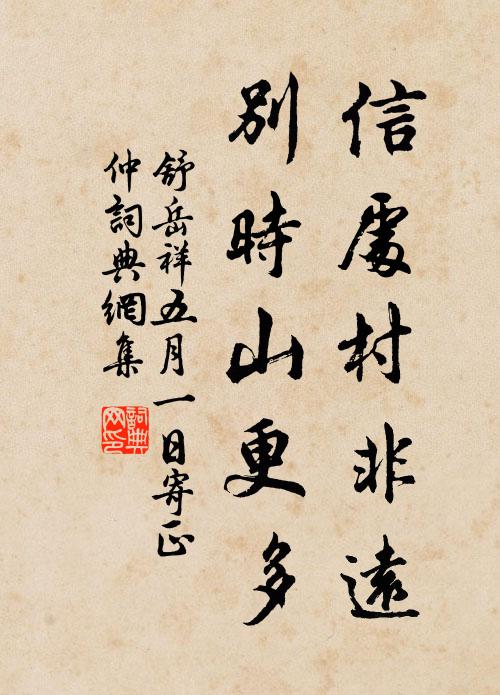 信處村非遠
別時山更多
舒岳祥五月一日寄正
仲詞典網集
詞典
网印